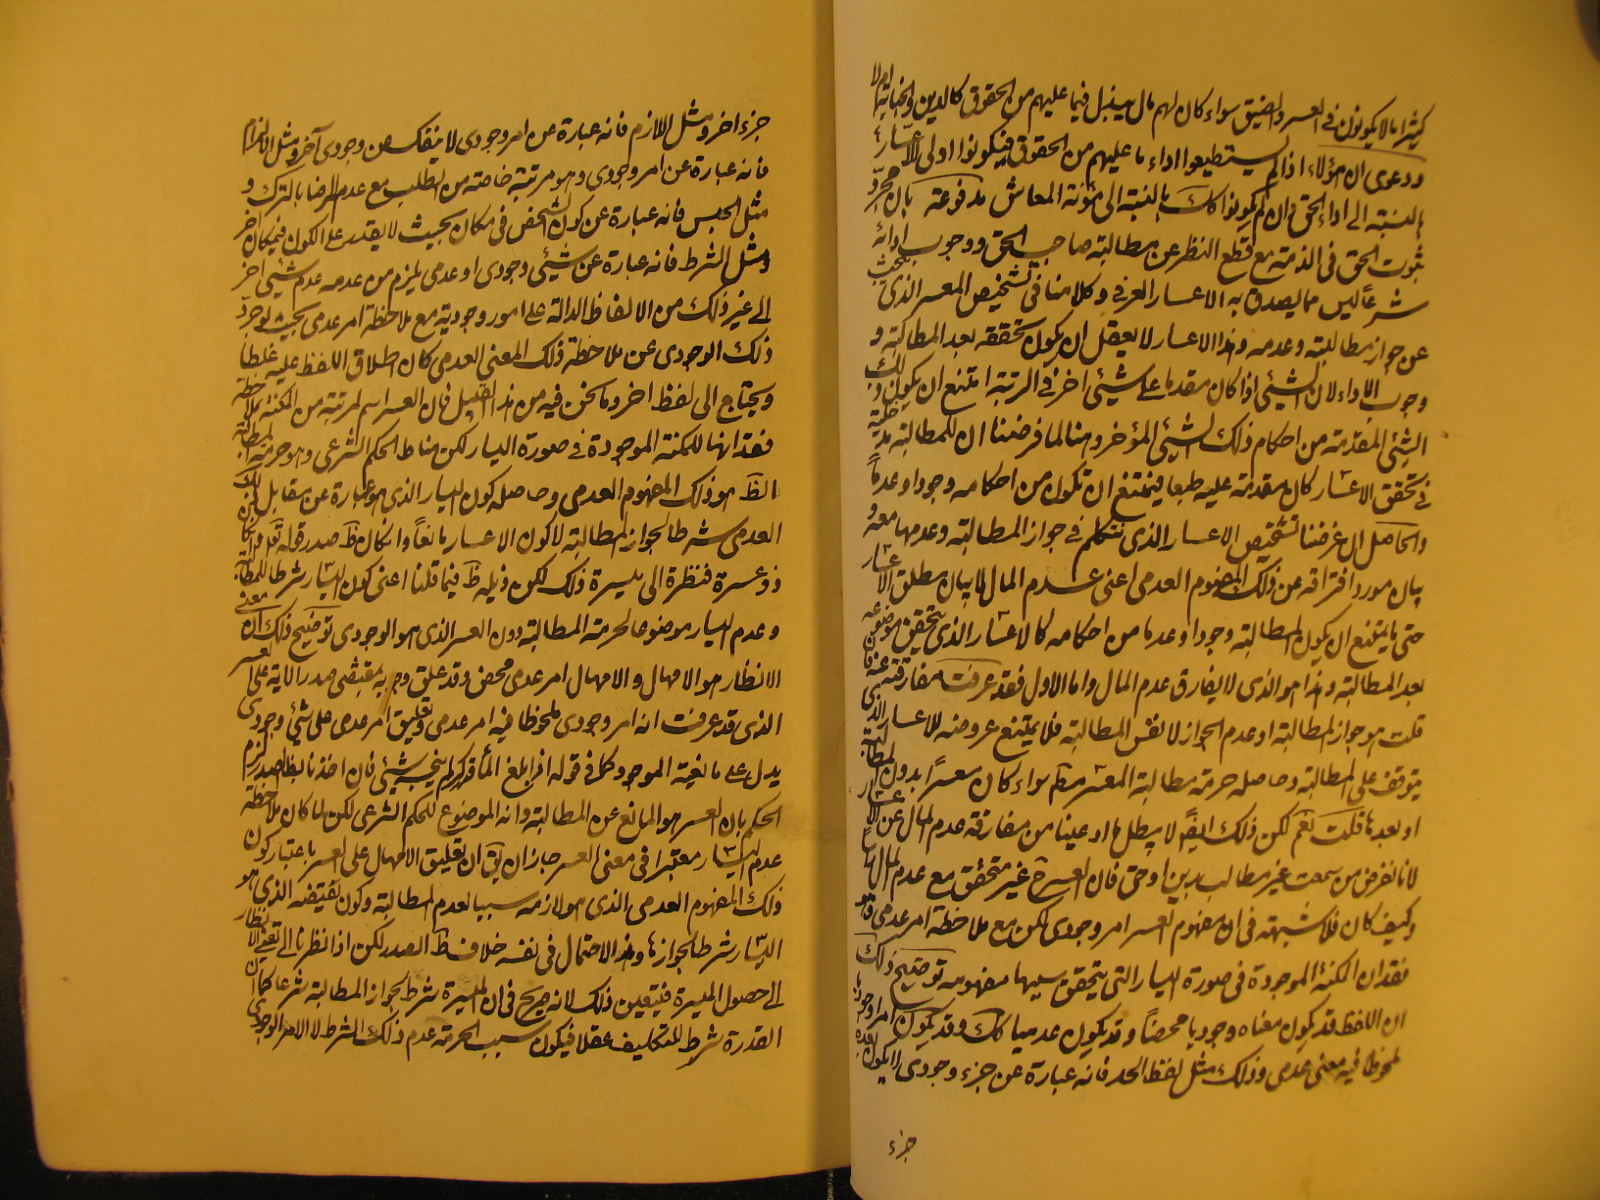 كثيرا ما لا يكونون في العسر والضيق سواء كان لهم مال يبذل فيما عليهم من الحقوق كالدين والجناية ام لا
ودعوى ان هؤلاء اذا لم يستطيعوا اداء ما عليهم من الحقوق فيكونوا اولى الاعسار
بالنسبة الى اداء الحق وان لم يكونوا كك بالنسبة الى مؤنة المعاش مدفوعة بان مجرد
ثبوت الحق في الذمة مع قطع النظر عن مطالبة صاحب الحق ووجوب ادائه
شرعا ليس مما يصدق به الاعسار العرفي وكلامنا في تشخيص المعسر الذي يبحث
عن جواز مطالبته وعدمه وهذا الاعسار لا يعقل ان يكون تحققه بعد المطالبة و
وجوب الاداء لان الشيئ اذا كان مقدما على شيئ اخر في الرتبة امتنع ان يكون ذلك
الشيئ المقدمة من احكام ذلك الشيئ المؤخر وهنا لما فرضنا ان للمطالبة مدخلية
في تحقق الاعسار كان مقدمة عليه طبعا فيمتنع ان تكون من احكامه وجودا وعدما
والحاصل ان غرضنا تشخيص الاعسار الذي نتكلم في جواز المطالبة وعدمها معه و
بيان مورد افتراقه عن ذلك المفهوم العدمي اعني عدم المال لا بيان مطلق الاعسار
حتى ما يمتنع ان يكون المطالبة وجودا وعدما من احكامه كالاعسار الذي يتحقق موضوعه
بعد المطالبة وهذا هو الذي لا يفارق عدم المال واما الاول فقد عرفت مفارقته عنه فان
قلت هو جواز المطالبة او عدم الجواز لا نفس المطالبة فلا يمتنع عروضه للاعسار الذي
يتوقف على المطالبة وحاصله حرمة مطالبة المعسر مطم سواء كان معسرا بدون المطالبة
او بعدها قلت نعم لكن ذلك ايضا لا يبطل ما ادعينا من مفارقة عدم المال عن الاعسار
لانا نفرض من سمعت غير مطالب بدين او حق فان العسر ح غير متحقق مع عدم المال
وكيف كان فلا شبهة في ان مفهوم العسر امر وجودي لكن مع ملاحظة امر عدمي وهو
فقدان المكنة الموجودة في صورة اليسار التي يتحقق بسببها مفهومه توضيح ذلك
ان اللفظ قد يكون معناه وجوديا محضا وقد يكون عدميا كك وقد يكون امرا وجوديا
ملحوظا فيه معنى عدمي وذلك مثل لفظ الحد فانه عبارة عن جزء وجودي لا يكون بعده
جزء
جزء اخر ومثل اللازم فانه عبارة عن امر وجودي لا ينفك عن وجودي آخر ومثل الالزام
فانه عبارة عن امر وجودي وهو مرتبة خاصة من الطلب مع عدم الرضا بالترك و
مثل الحبس فانه عبارة عن كون الشخص في مكان بحيث لا يقدر على الكون في مكان اخر
ومثل الشرط فانه عبارة عن شيئ وجودي او عدمي يلزم من عدمه عدم شيئ اخر
الى غير ذلك من الالفاظ الدالة على امور وجودية مع ملاحظة امر عدمي بحيث لو جرد
ذلك الوجودي عن ملاحظة ذلك المعنى العدمي كان اطلاق اللفظ عليه غلطا
ويحتاج الى لفظ اخر وما نحن فيه من هذا القبيل فان العسر اسم لمرتبة من المكنة بملاحظة
فقدانها للمكنة الموجودة في صورة اليسار لكن مناط الحكم الشرعي وهو حرمة المطالبة
الظ هو ذلك المفهوم العدمي وحاصله كون اليسار الذي هو عبارة عن مقابل ذلك
العدمي شرطا لجواز المطالبة لا كون الاعسار مانعا وان كان ظ صدر قوله تعالى وان كان
ذو عسرة فنظرة الى ميسرة ذلك لكن ذيله ظ فيما قلنا اعني كون اليسار شرطا للمطالبة
وعدم اليسار موضوعا لحرمة المطالبة دون العسر الذي هو الوجودي توضيح ذلك ان معنى
الانظار هو الامهال والامهال امر عدمي محض وقد علق وجوبه بمقتضى صدر الاية على العسر
الذي قد عرفت انه امر وجودي ملحوظا فيه امر عدمي وتعليق امر عدمي على شيئ وجودي
يدل على مانعية الموجود كما في قوله اذا بلغ الماء قدر كر لم ينجسه شيئ فان اخذنا بظ الصدر لزم
الحكم بان العسر هو المانع عن المطالبة وانه الموضوع للحكم الشرعي لكن لما كان ملاحظة
عدم اليسار معتبرا في معنى العسر جاز ان يق ان تعليق الامهال على العسر باعتبار كون
ذلك المفهوم العدمي الذي هو لازمه سببا لعدم المطالبة وكون نقيضه الذي هو
اليسار شرطا لجوازها وهذا الاحتمال في نفسه خلاف ظ الصدر لكن اذا نظرنا الى تعليق الانظار
الى حصول الميسرة فيتعين ذلك لانه صريح في ان الميسرة شرط لجواز المطالبة شرعا كما ان
القدرة شرط للتكليف عقلا فيكون سبب الحرمة عدم ذلك الشرط لا الامر الوجودي